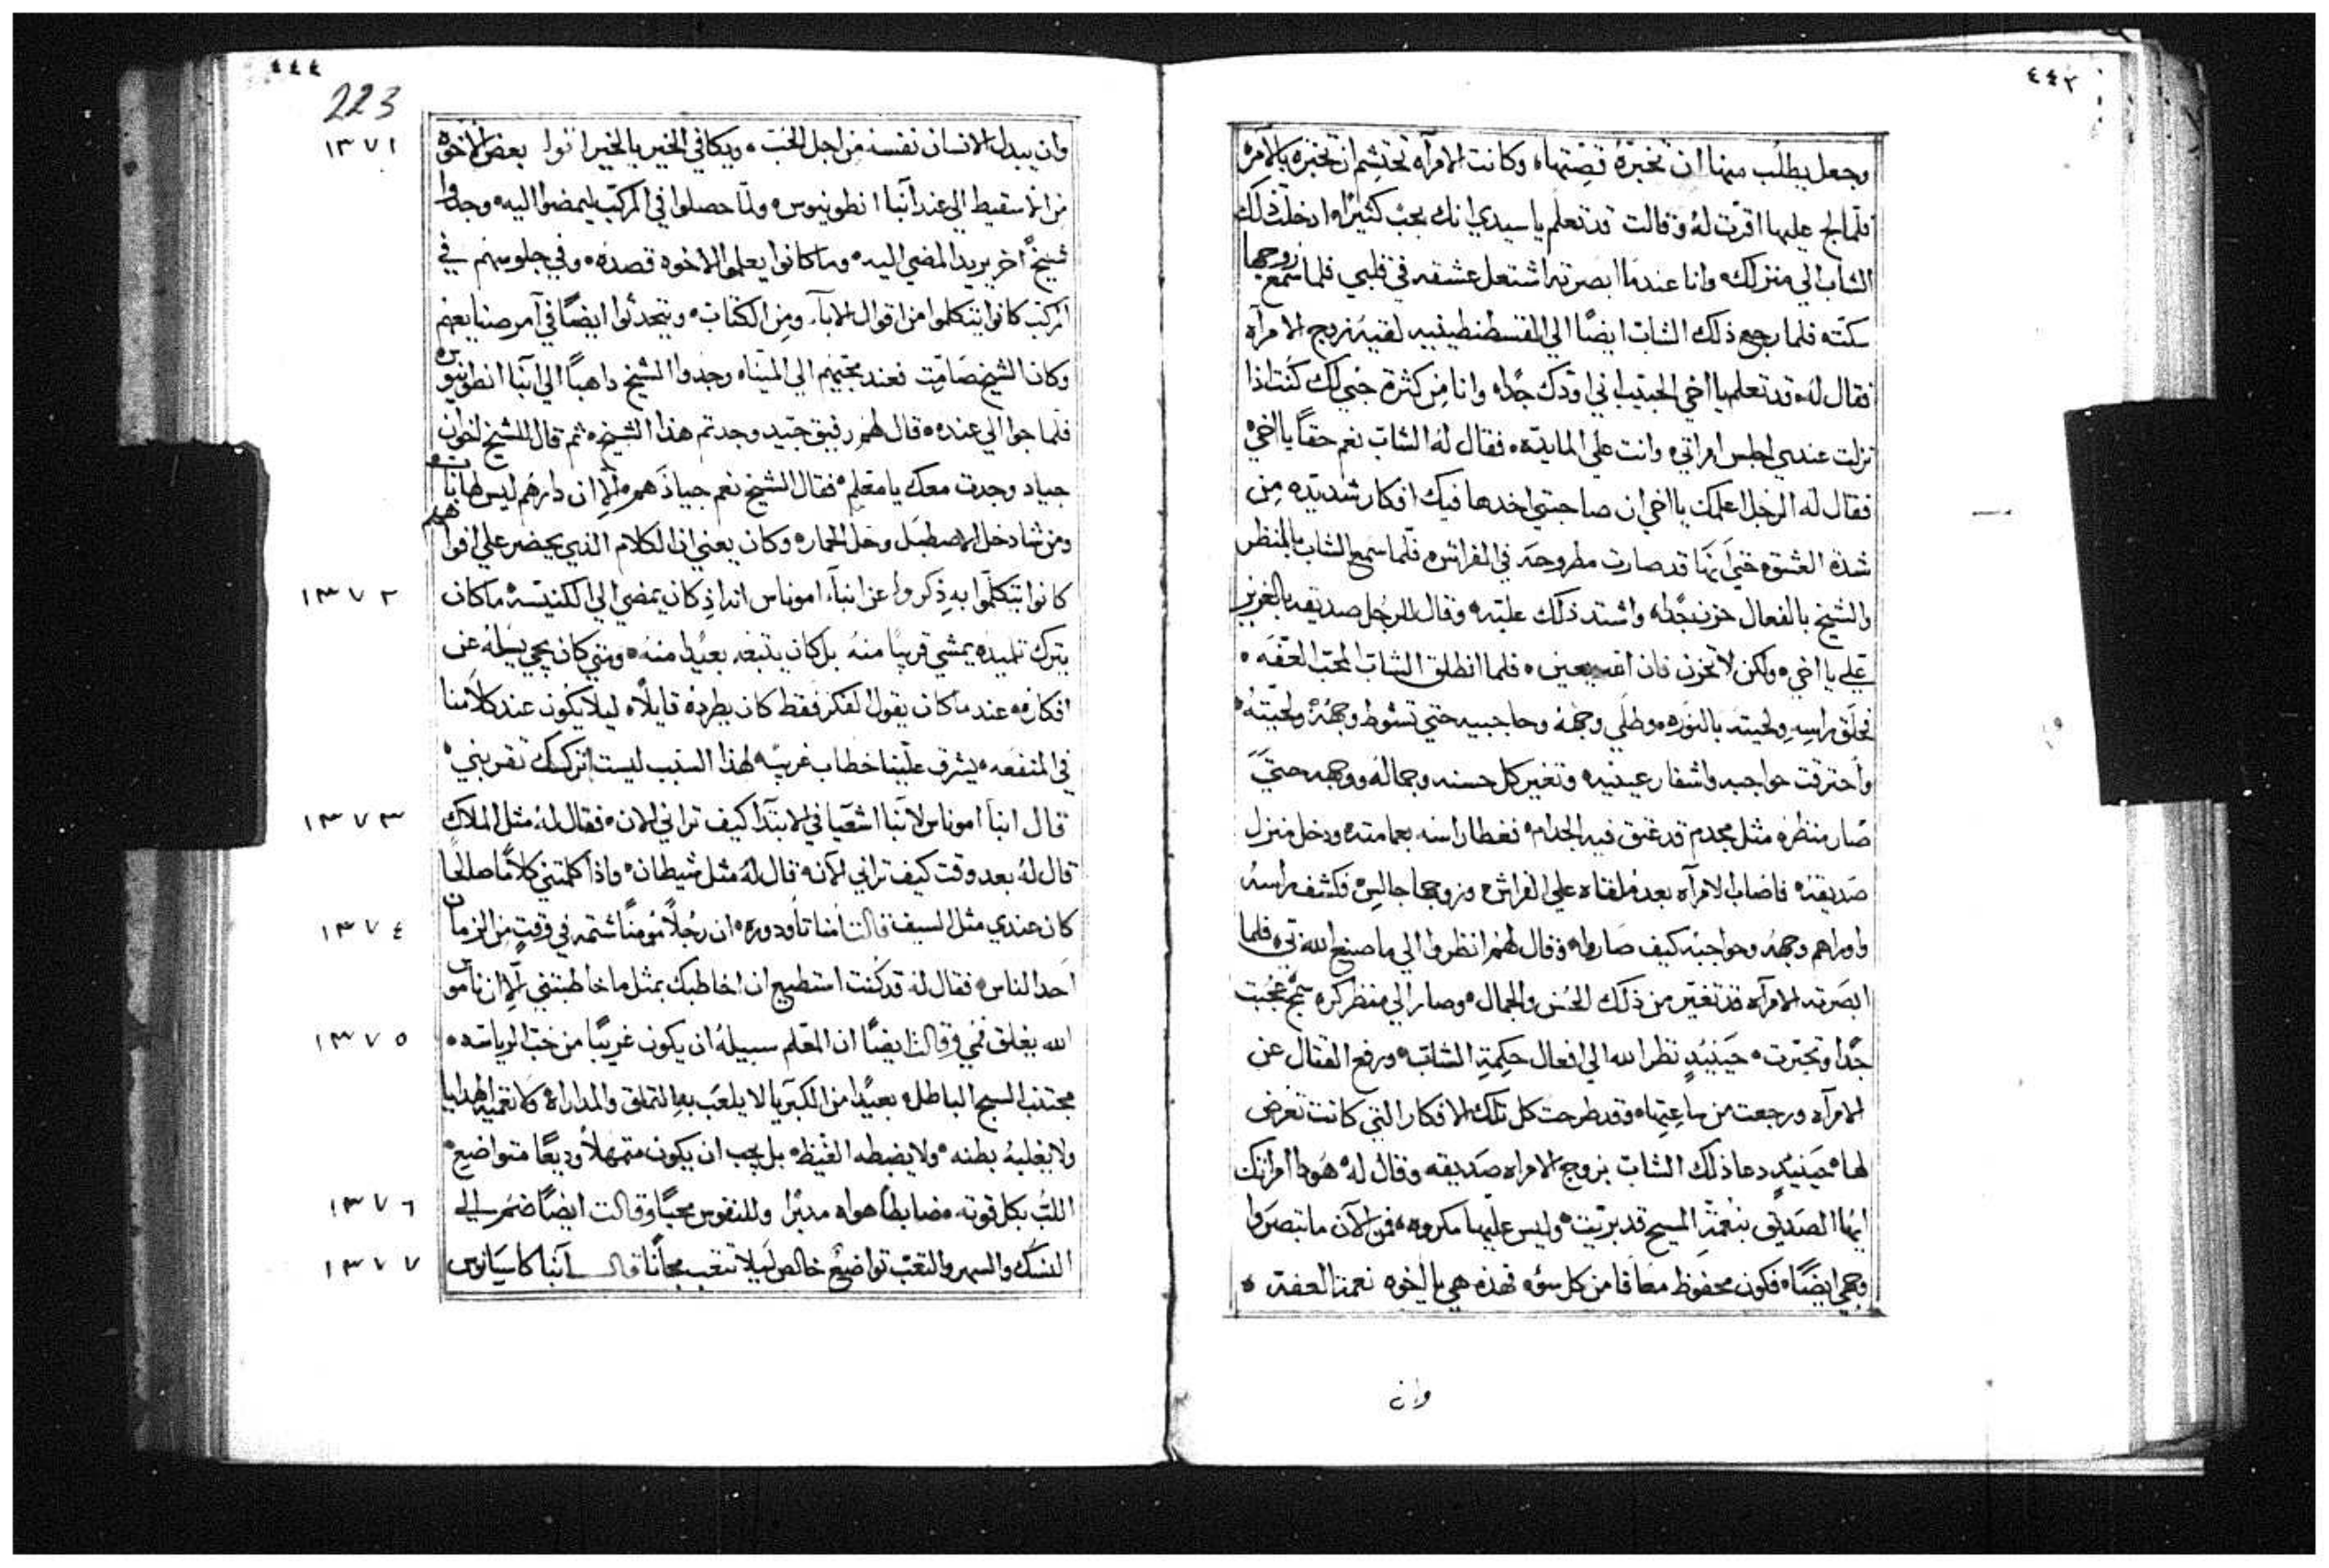 ٤٤٣
وجعل يطلب منها ان تخبره قصتها، وكانت الامرآه تحتشم ان تخبره بالامر،
فلما لج عليها اقرت له وقالت قد تعلم يا سيدي انك بحب كثيرًا ادخلت ذلك
الشاب الي منزلك، وانا عندما ابصرته اشتعل عشقه في قلبي فلما سمع زوجها
سكت، فلما رجع ذلك الشاب ايضًا الي القسطنطينيه لقيه زوج الامرآه
فقال له، قد تعلم يا اخي الحبيب اني اودك جدًا، وانا من كثرة حبي لك كنت اذا
نزلت عندي اجلس امراتي، وانت علي المايده، فقال له الشاب نعم حقًا يا اخي،
فقال له الرجل اعلمك يا اخي ان صاحبتي اخدها فيك افكار شديده من
شدة العشق، حتي انها قد صارت مطروحه في الفراش، فلما سمع الشاب بالمنظر
والشيخ بالفعال حزن جدًا، واشتد ذلك عليه، وقال للرجل صديقه يا لعزيز
علي يا اخي، ولكن لا تحزن فان الله يعين، فلما انطلق الشاب المحب العفه،
فحلق راسه ولحيته بالنوره، وطلي وجهه وحاجبيه حتي تشوط وجهه ولحيته،
واحترقت حواجبه واشفار عينيه، وتغير كل حسنه وجماله ووجهه حتي
صار منظره مثل مجدم قد عتق فيه الجدام، فغطا راسه بعمامته، ودخل منزل
صديقه، فاصاب الامرآه بعد ملقاه علي الفراش، وزوجها جالس، فكشف راسه
واوراهم وجهه وحواجبه كيف صاروا، وقال لهم انظروا الي ما صنع الله بي، فلما
ابصرته الامرآه قد تغير من ذلك الحسن والجمال، وصار الي منظر كره سمج عجبت
جدًا وتحيرت، حينيدٍ نظر الله الي افعال حكمة الشاب، ورفع القتال عن
الامرآه ورجعت من ساعتها، وقد طرحت كل تلك الافكار التي كانت تعرض
لها، حينيدٍ دعا ذلك الشاب بزوج الامراه صديقه وقال له، هودا امراتك
ايها الصديق بنعمة المسيح قد بريت، وليس عليها مكروه، فمن الآن ما تبصر
وجهي ايضًا، فكون محفوظ معافا من كل سؤ، فهذه هي يا ليخوه نعمة العفة،
وان
٤٤٤
223
وان يبدل الانسان نفسه من اجل الحب، ويكافي الخير بالخير اتوا بعض الاخوه
١٣٧١
من الاسقيط الي عند آنبا انطونيوس، ولما حصلوا في المركب ليمضوا اليه، وجدوا
شيخً اخر يريد المضي اليه، وما كانوا يعلموا الاخوه قصده، وفي جلوسهم في
المركب كانوا يتكلموا من اقوال الابآ، ومن الكتاب، ويتحدثوا ايضًا في آمر صنايعهم
وكان الشيخ صامت، فعند مجيهم الي الميناه وجدوا الشيخ داهبًا الي آنبا انطونيوس،
فلما جوا الي عنده، قال لهم رفيق جيد وجدتم هذا الشيخ، ثم قال للشيخ لخوان
جياد وجدت معك يا معلم، فقال الشيخ نعم جياد هم، الا ان دارهم ليس لها باب،
ومن شا دخل الاصطبل وحل الحمار، وكان يعني ان الكلام الذي يحضر علي افواههم
كانوا يتكلموا به ذكروا عن انبآ، اموناس انه اذ كان يمضي الي الكنيسه، ما كان
١٣٧٢
يترك تلميده يمشي قريبًا منه بل كان يتبعه بعيدًا منه، ومتي كان يجي يسله عن
افكاره، عند ما كان يقول الفكر فقط كان يطرده قايلًا، ليلا يكون عند كلامنا
في المنفعه، يشرق علينا خطاب غريبه لهذا السبب ليست اتركك تقربني،
قال انبا اموناس لآنبا اشعيا في الابتدا كيف تراني الان، فقال له مثل الملاك
١٣٧٣
قال له بعد وقت كيف تراني الآن، قال له مثل شيطان، واذا كلمتني كلامًا صالحًا
كان عندي مثل السيف قالت امنا تاودوره، ان رجلًا مومنًا شتمه في وقت من الزمان
١٣٧٤
احد الناس، فقال له قد كنت استطيع ان اخاطبك بمثل ما خاطبتني الا ان ناموس
الله يغلق فمي وقالت ايضًا ان المعلم سبيله ان يكون غريبًا من حب الرياسه،
١٣٧٥
مجتنب السبح الباطل، بعيدًا من الكبريا لا يلعب به التملق والمداراه، ولا تعميه الهدايا
ولا يغلبه بطنه، ولا يضبطه الغيظ، بل يجب ان يكون متمهلًا وديعًا متواضع،
اللب بكل قوته، ضابطًا هواه مدبرًا وللنفوس محبًا وقالت ايضًا ضمر الي
١٣٧٦
النسك والسهر والتعب تواضع خالص ليلا تتعب مجانًا قال آنبا كاسيانوس
١٣٧٧